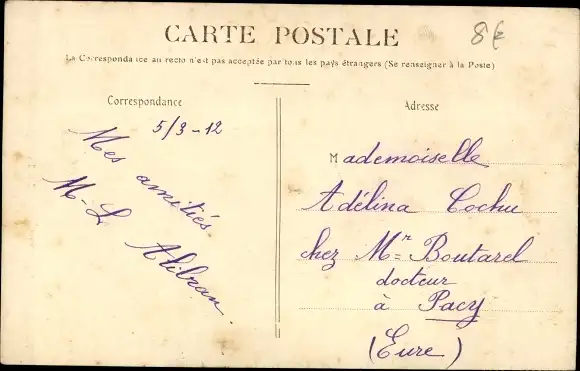 CARTE POSTALE
8€
La Correspondance au recto n'est pas acceptée par tous les pays étrangers (Se renseigner à la Poste)
Correspondance
5/3-12
Mes amitiés
M-L Alibran
Adresse
Mademoiselle
Adélina Cochu
chez Mr Boutarel
docteur
à Pacy
(Eure)